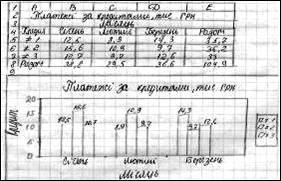 A B C D E
2 Платежі за кредитами, тис грн
3 місяць
4 Кредит Січень Лютий Березень Разом
5 №1 12,5 8,9 14,3 35,7
6 №2 15,6 10,9 9,7 36,2
7 №3 10,7 9,7 12,6 33
8 Разом 38,8 29,5 36,6 104,9
Платежі за кредитами, тис грн
20
15
10
5
0
12,5 15,6 10,7 8,9 10,9 9,7 14,3 9,7 12,6
Січень Лютий Березень
місяць